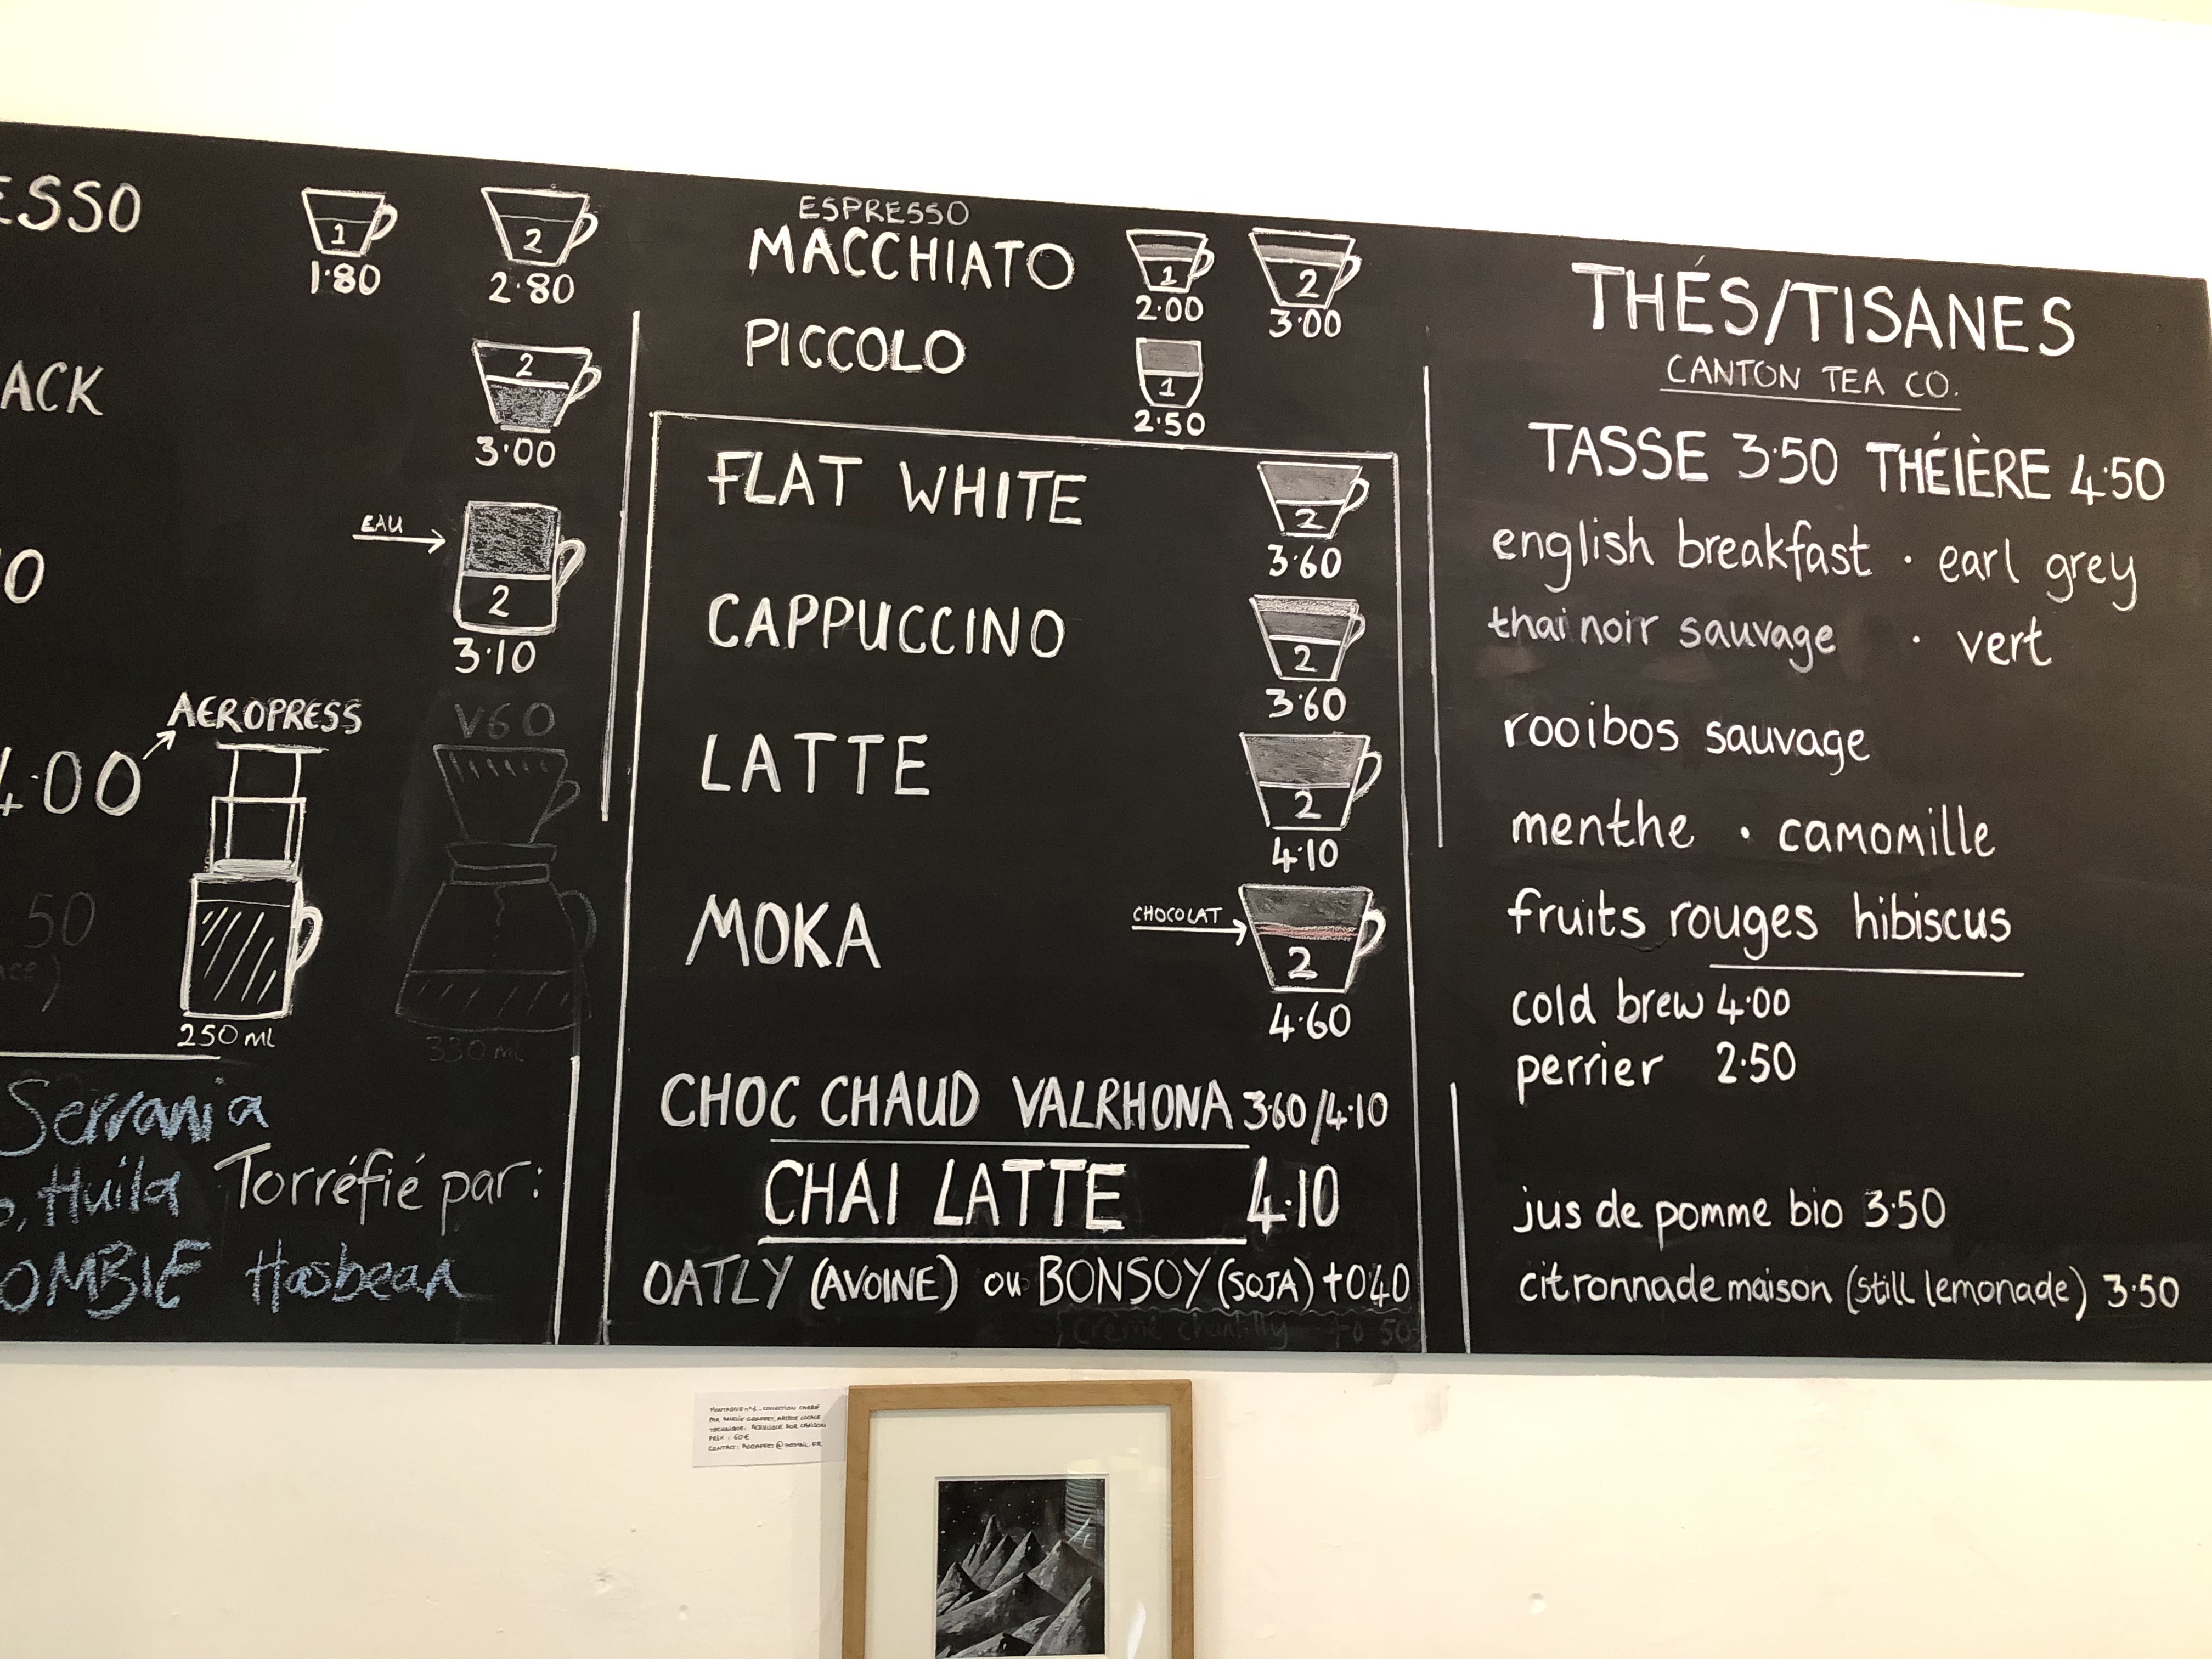 ESSO
1
1·80
2
2·80
ACK
2
3·00
O
EAU
2
3·10
4·00
AEROPRESS
250 ml
V60
330 ml
50
Serrania
, Huila
OMBIE
Torréfié par:
Hasbean
ESPRESSO
MACCHIATO
1
2·00
2
3·00
PICCOLO
1
2·50
FLAT WHITE
2
3·60
CAPPUCCINO
2
3·60
LATTE
2
4·10
MOKA
CHOCOLAT
2
4·60
CHOC CHAUD VALRHONA 3·60/4·10
CHAI LATTE 4·10
OATLY (AVOINE) ou BONSOY (SOJA) +0·40
crème chantilly +0·50
THÉS/TISANES
CANTON TEA CO.
TASSE 3·50 THÉIÈRE 4·50
english breakfast · earl grey
thai noir sauvage · vert
rooibos sauvage
menthe · camomille
fruits rouges hibiscus
cold brew 4·00
perrier 2·50
jus de pomme bio 3·50
citronnade maison (still lemonade) 3·50
COLLECTION CARRÉ
ARTISTE LOCALE
TECHNIQUE: ACRYLIQUE SUR CANSON
PRIX : 60€